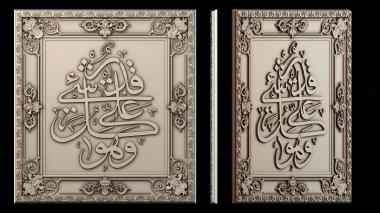 وهو على كل شيء قدير
وهو على كل شيء قدير